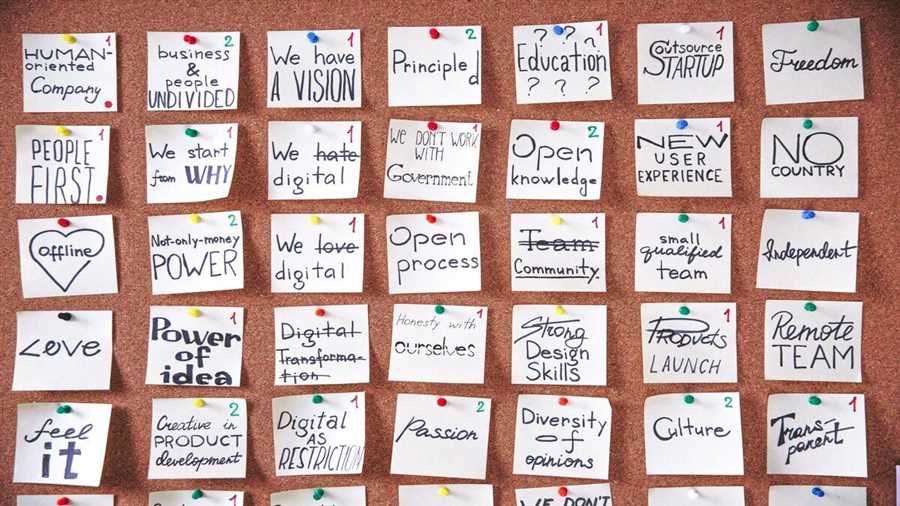 HUMAN- 1
oriented
Company
business 2
&
people
UNDIVIDED
We have 1
A VISION
2
Principled
? ? ? 1
Education
? ? ?
Outsource 1
STARTUP
Freedom
1
PEOPLE
FIRST
1
We start
from WHY
1
We hate
digital
WE DON'T WORK 1
WITH
Government
2
Open
knowledge
NEW 1
USER
EXPERIENCE
NO
COUNTRY
1
offline
2
Not-only-money
POWER
1
We love
digital
Open
process
1
Team
Community
1
small
qualified
team
Independent
Love
Power 1
of
idea
Digital
Transforma-
tion
1
Honesty with
ourselves
Strong
Design
Skills
1
Products
LAUNCH
Remote
TEAM
feel
it
2
Creative in
PRODUCT
development
1
Digital
AS
RESTRICTION
2
Passion
Diversity
of
opinions
2
Culture
1
Trans-
parent
1
WE DON'T